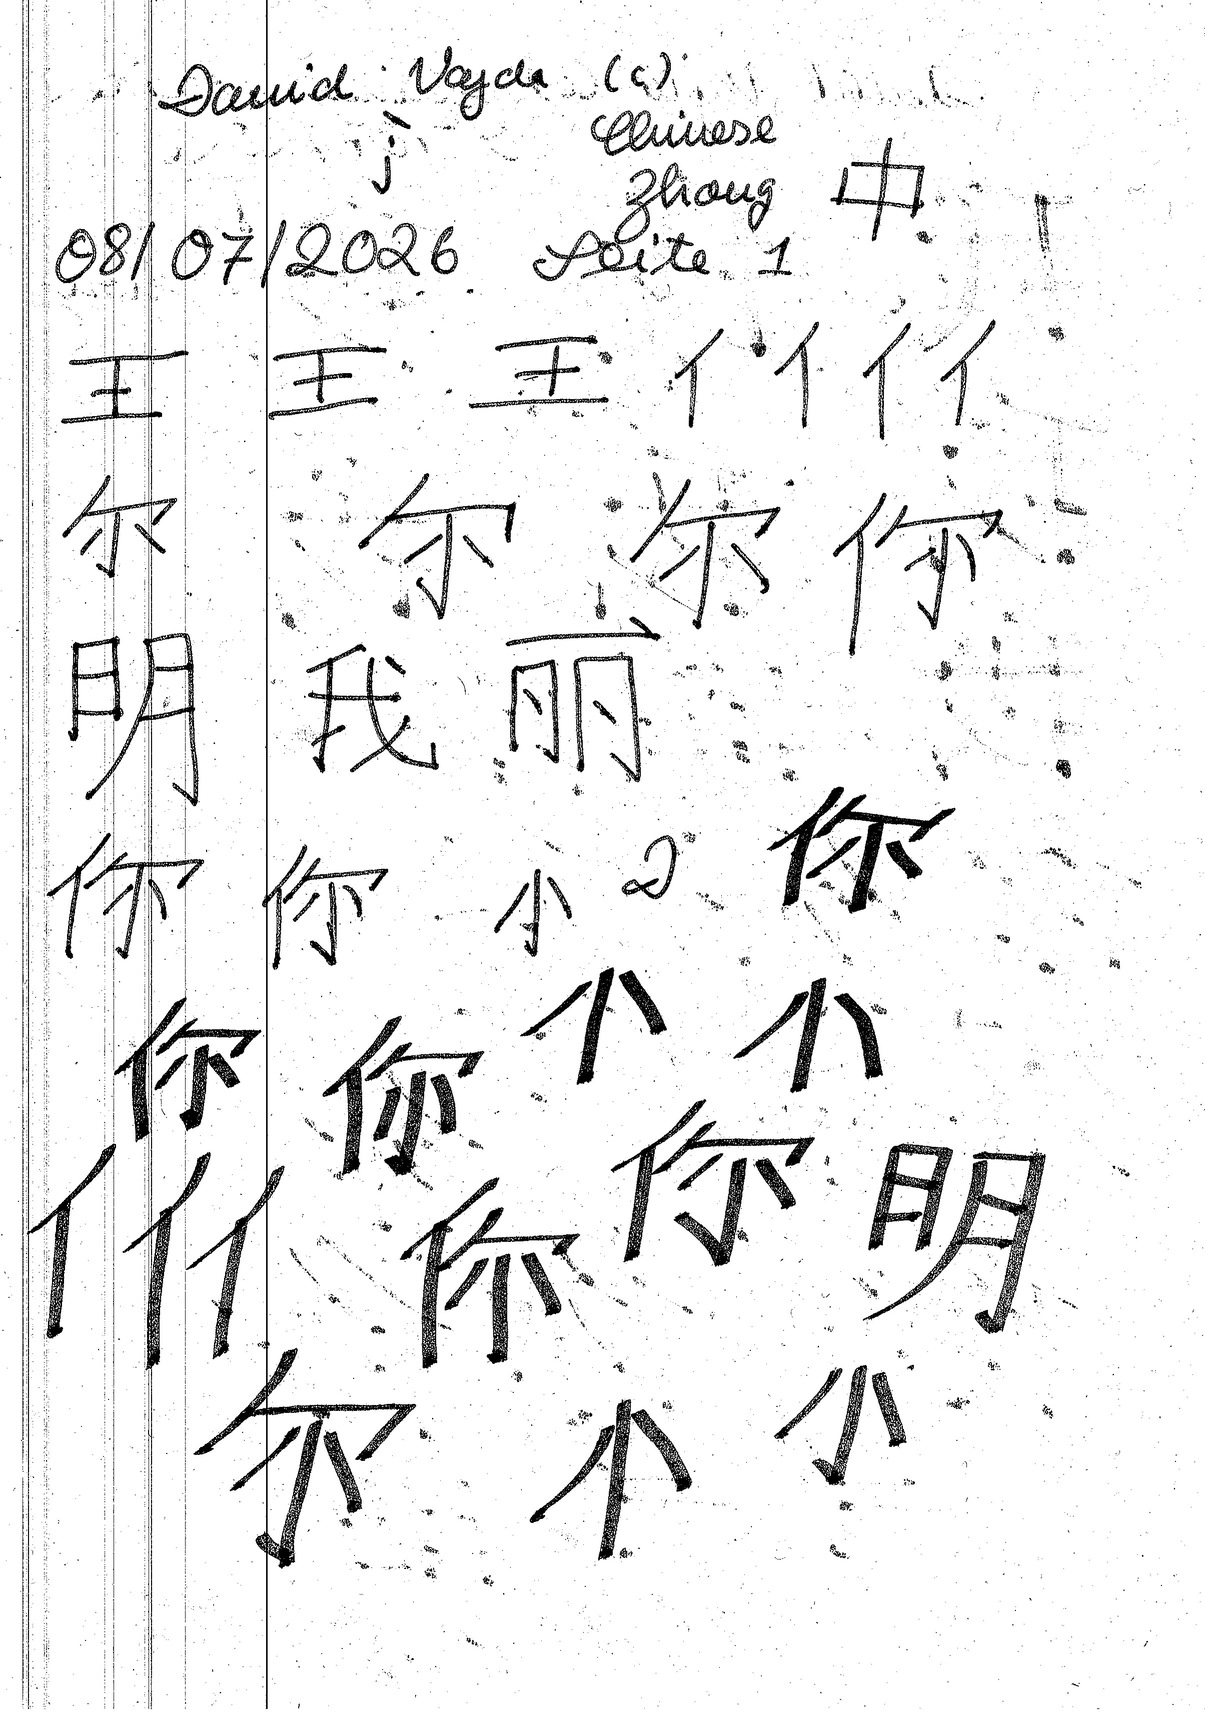 David Vajda (c)
Chinese
Zhong 中
08/07/2026 Seite 1
王 王 王 亻 亻 亻 亻
尔 尔 尔 你
明 我 丽
你 你 小 你
小 小
你 你
你 明
亻 亻 亻 你
尔 小 小